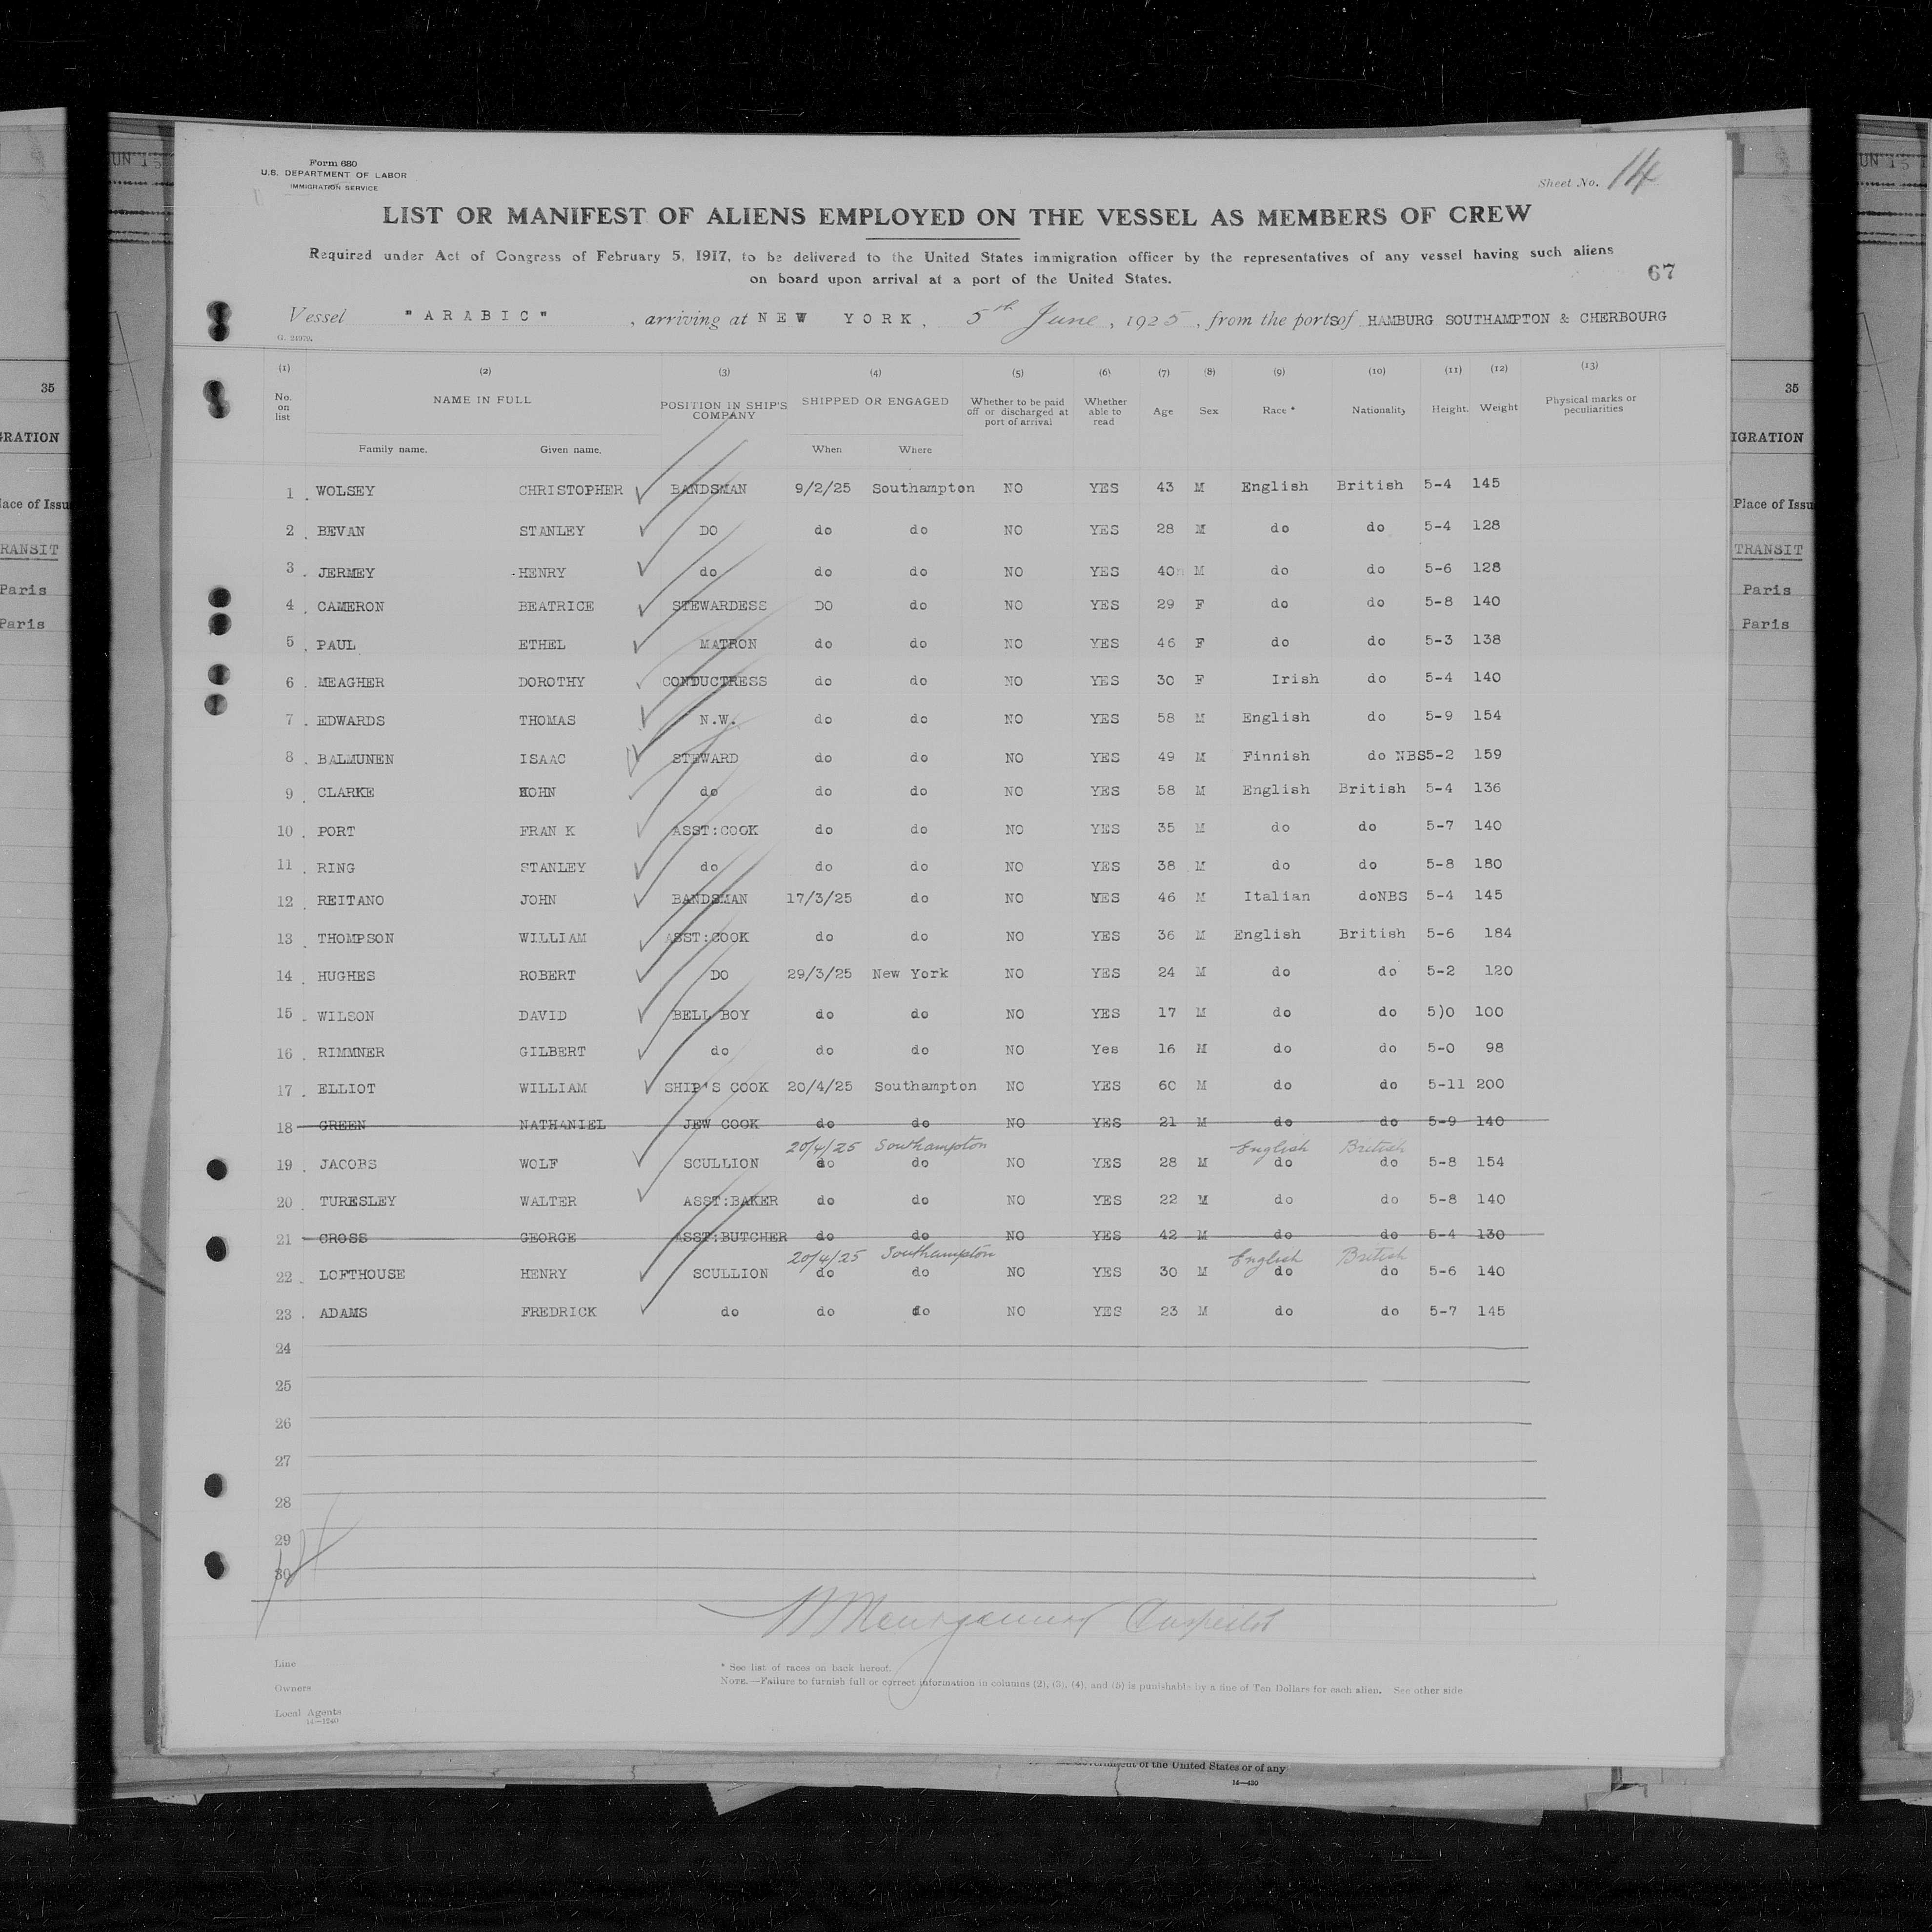 Form 680
U.S. DEPARTMENT OF LABOR
IMMIGRATION SERVICE
Sheet No. 14
LIST OR MANIFEST OF ALIENS EMPLOYED ON THE VESSEL AS MEMBERS OF CREW
Required under Act of Congress of February 5, 1917, to be delivered to the United States immigration officer by the representatives of any vessel having such aliens
on board upon arrival at a port of the United States.
67
Vessel "ARABIC", arriving at NEW YORK, 5th June, 1925, from the ports of HAMBURG SOUTHAMPTON & CHERBOURG
G. 24979.
(1) (2) (3) (4) (5) (6) (7) (8) (9) (10) (11) (12) (13)
No. on list NAME IN FULL POSITION IN SHIP'S COMPANY SHIPPED OR ENGAGED Whether to be paid off or discharged at port of arrival Whether able to read Age Sex Race * Nationality Height. Weight Physical marks or peculiarities
Family name. Given name. When Where
1 WOLSEY CHRISTOPHER BANDSMAN 9/2/25 Southampton NO YES 43 M English British 5-4 145
2 BEVAN STANLEY DO do do NO YES 28 M do do 5-4 128
3 JERMEY HENRY do do do NO YES 40 M do do 5-6 128
4 CAMERON BEATRICE STEWARDESS DO do NO YES 29 F do do 5-8 140
5 PAUL ETHEL MATRON do do NO YES 46 F do do 5-3 138
6 MEAGHER DOROTHY CONDUCTRESS do do NO YES 30 F Irish do 5-4 140
7 EDWARDS THOMAS N.W. do do NO YES 58 M English do 5-9 154
8 BALMUNEN ISAAC STEWARD do do NO YES 49 M Finnish do NBS 5-2 159
9 CLARKE JOHN do do do NO YES 58 M English British 5-4 136
10 PORT FRAN K ASST:COOK do do NO YES 35 M do do 5-7 140
11 RING STANLEY do do do NO YES 38 M do do 5-8 180
12 REITANO JOHN BANDSMAN 17/3/25 do NO YES 46 M Italian doNBS 5-4 145
13 THOMPSON WILLIAM ASST:COOK do do NO YES 36 M English British 5-6 184
14 HUGHES ROBERT DO 29/3/25 New York NO YES 24 M do do 5-2 120
15 WILSON DAVID BELL BOY do do NO YES 17 M do do 5)0 100
16 RIMMNER GILBERT do do do NO Yes 16 M do do 5-0 98
17 ELLIOT WILLIAM SHIP'S COOK 20/4/25 Southampton NO YES 60 M do do 5-11 200
18 GREEN NATHANIEL JEW COOK do do NO YES 21 M do do 5-9 140
20/4/25 Southampton English British
19 JACOBS WOLF SCULLION do do NO YES 28 M do do 5-8 154
20 TURESLEY WALTER ASST:BAKER do do NO YES 22 M do do 5-8 140
21 CROSS GEORGE ASST:BUTCHER do do NO YES 42 M do do 5-4 130
20/4/25 Southampton English British
22 LOFTHOUSE HENRY SCULLION do do NO YES 30 M do do 5-6 140
23 ADAMS FREDRICK do do do NO YES 23 M do do 5-7 145
24
25
26
27
28
29
30
Line
Owners
Local Agents
14—1240
* See list of races on back hereof.
NOTE.—Failure to furnish full or correct information in columns (2), (3), (4), and (5) is punishable by a fine of Ten Dollars for each alien. See other side
of the United States or of any
14—430
UN 13
35
GRATION
lace of Issu
RANSIT
Paris
Paris
UN 13
35
IGRATION
Place of Issu
TRANSIT
Paris
Paris